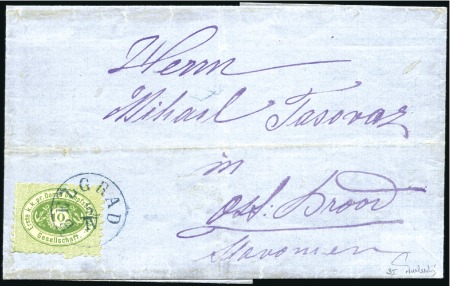 Herrn
Mihail Tasovaz
in
Ost: Brood
Slavonien
GRAD
10
Gesellschaft.